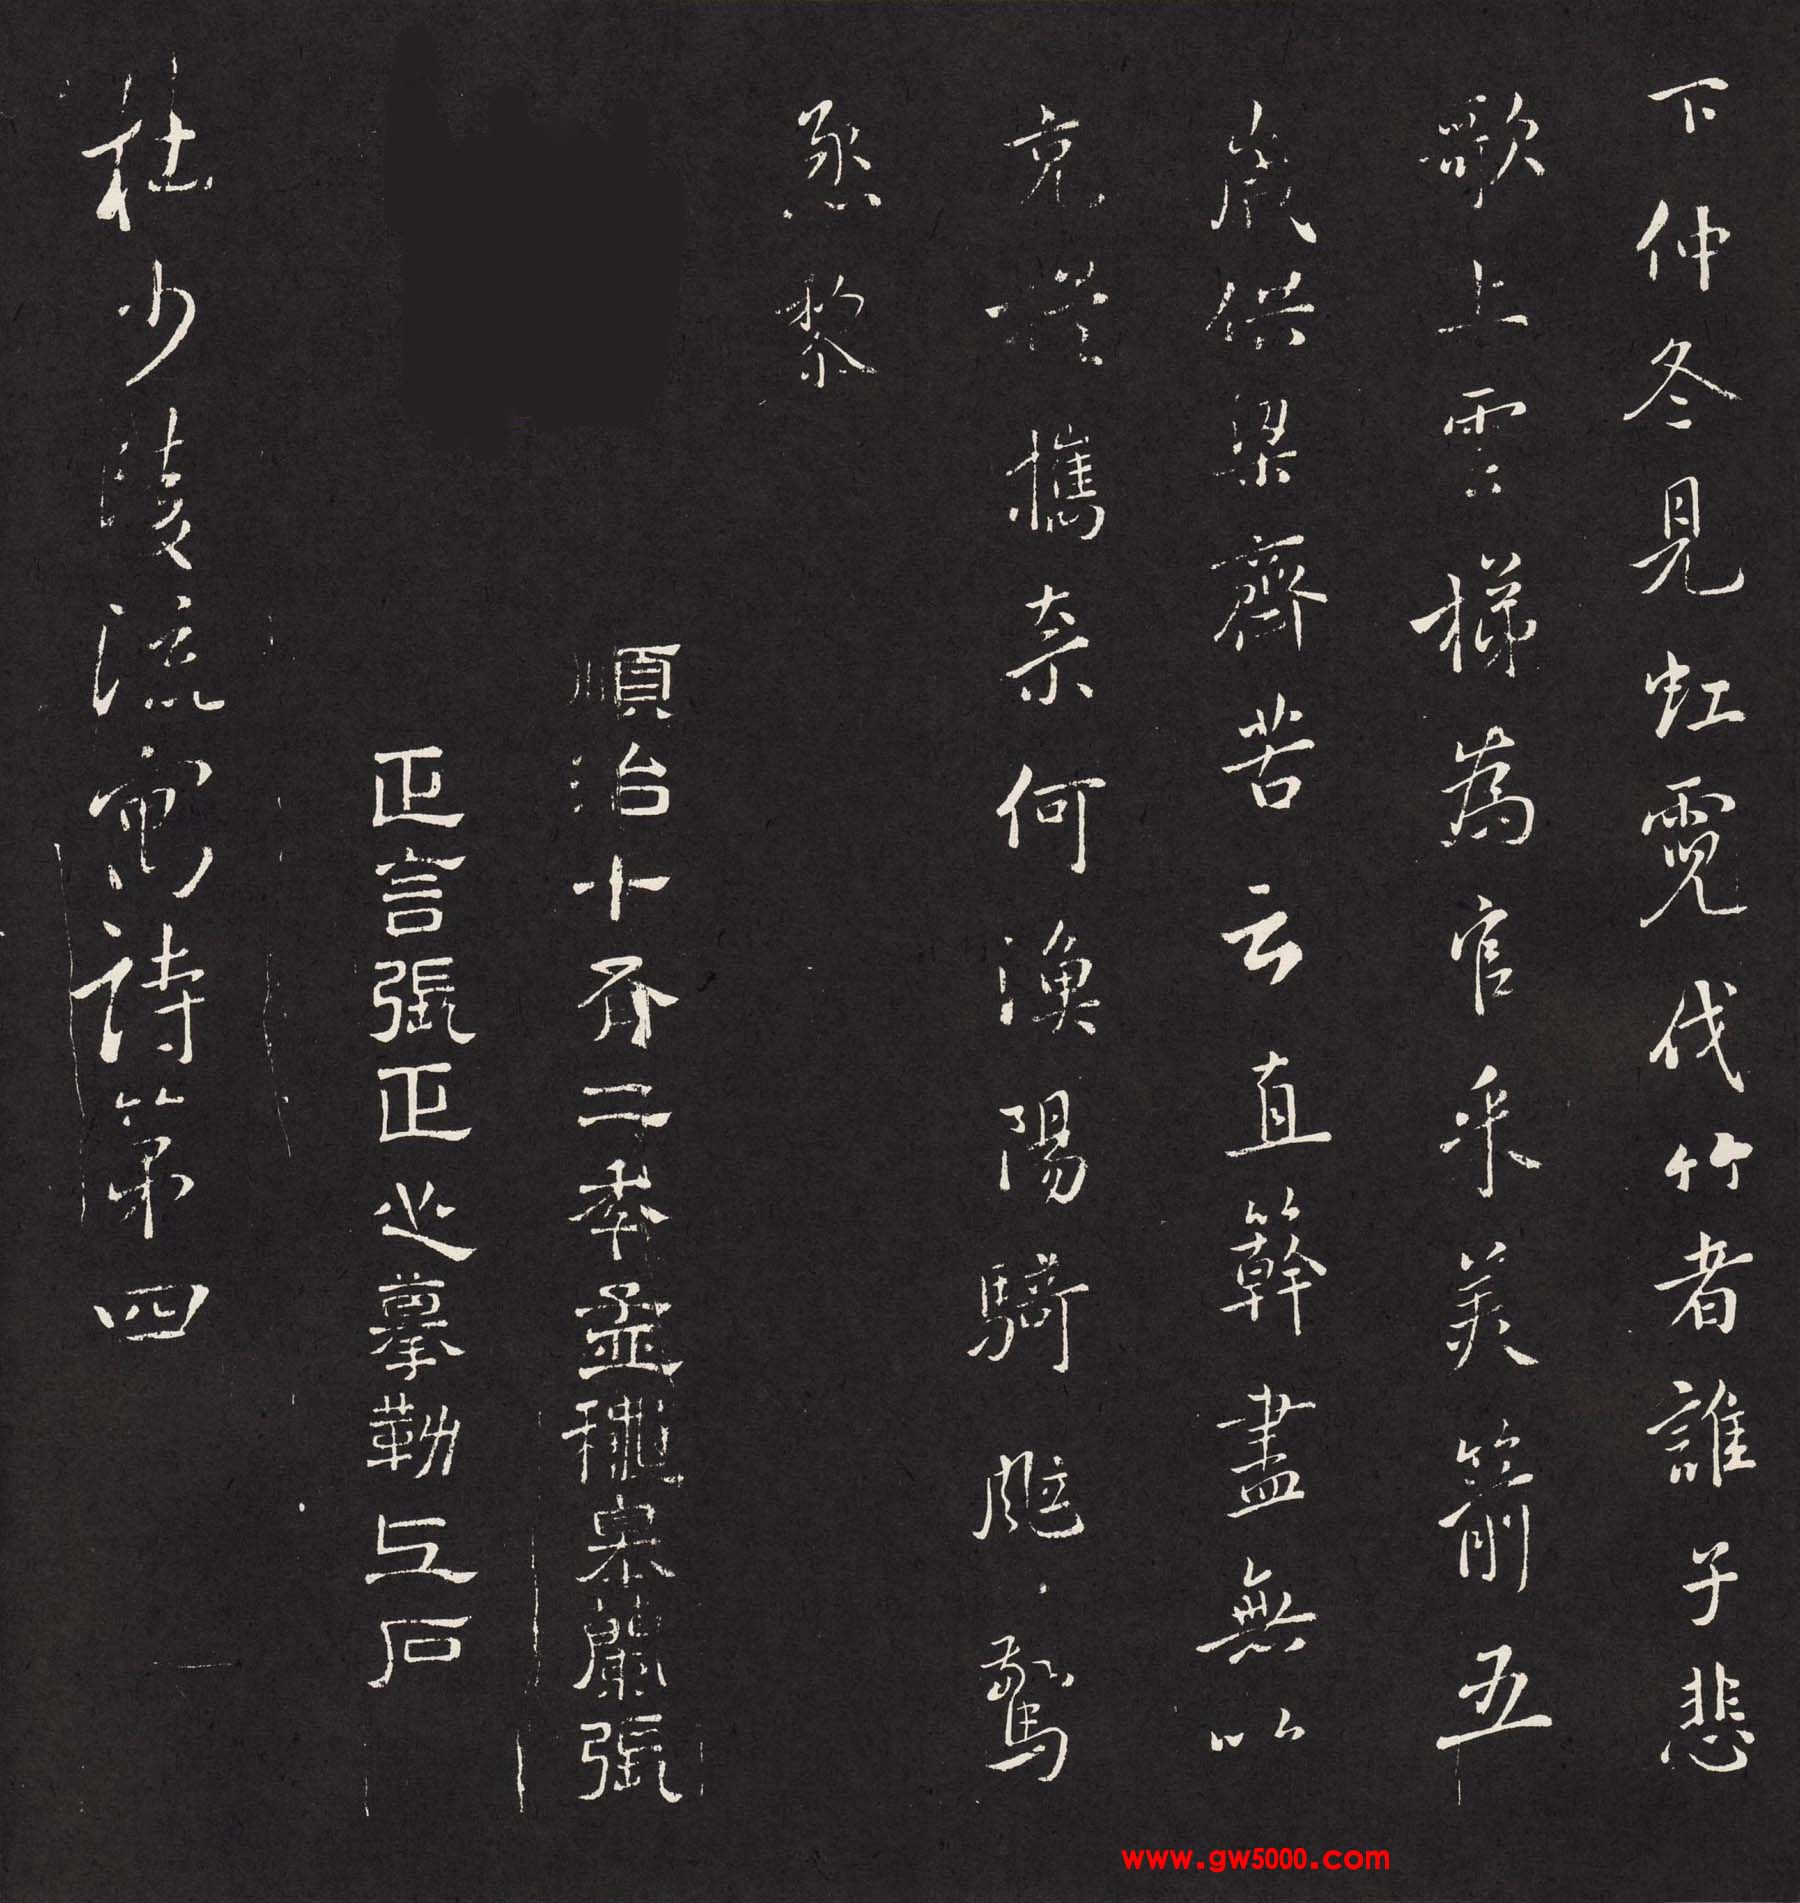 下仲冬見虹霓伐竹者誰子悲
歌上雲梯為官采美箭五
歲供梁齊苦云直簳盡無以
充提攜奈何漁陽騎颯〻驚
烝黎
順治十有二年孟秋皋蘭張
正言張正心摹勒上石
杜少陵流寓詩第四
www.gw5000.com